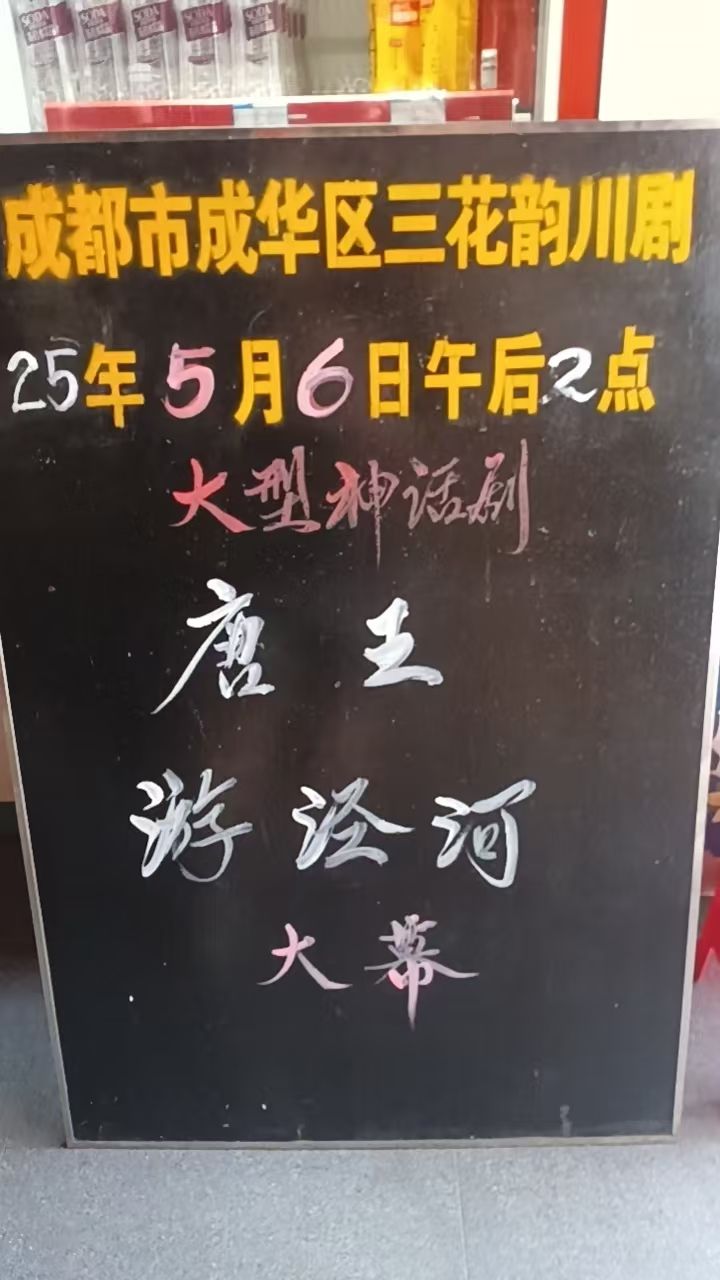 SODA SODA SODA SODA SODA
成都市成华区三花韵川剧
25年5月6日午后2点
大型神话剧
唐王
游泾河
大幕